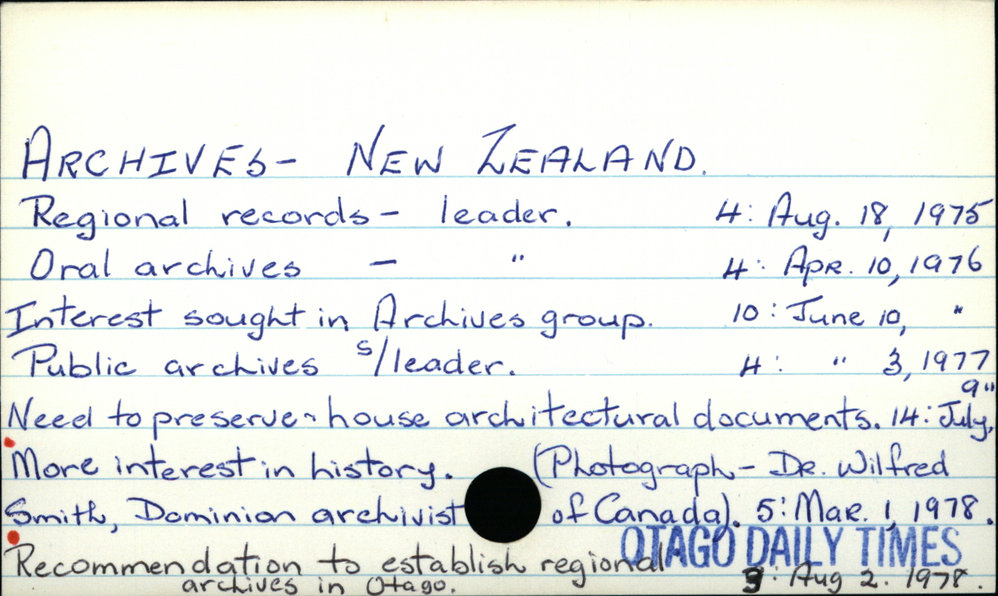 ARCHIVES- NEW ZEALAND.
Regional records- leader. 4: Aug. 18, 1975
Oral archives - " 4: Apr. 10, 1976
Interest sought in Archives group. 10: June 10, "
Public archives s/leader. 4: " 3, 1977
Need to preserve house architectural documents. 14: July, 9 "
More interest in history. (Photograph- Dr. Wilfred
Smith, Dominion archivist of Canada). 5: Mar. 1, 1978.
Recommendation to establish regional OTAGO DAILY TIMES
archives in Otago. 3: Aug 2. 1978.